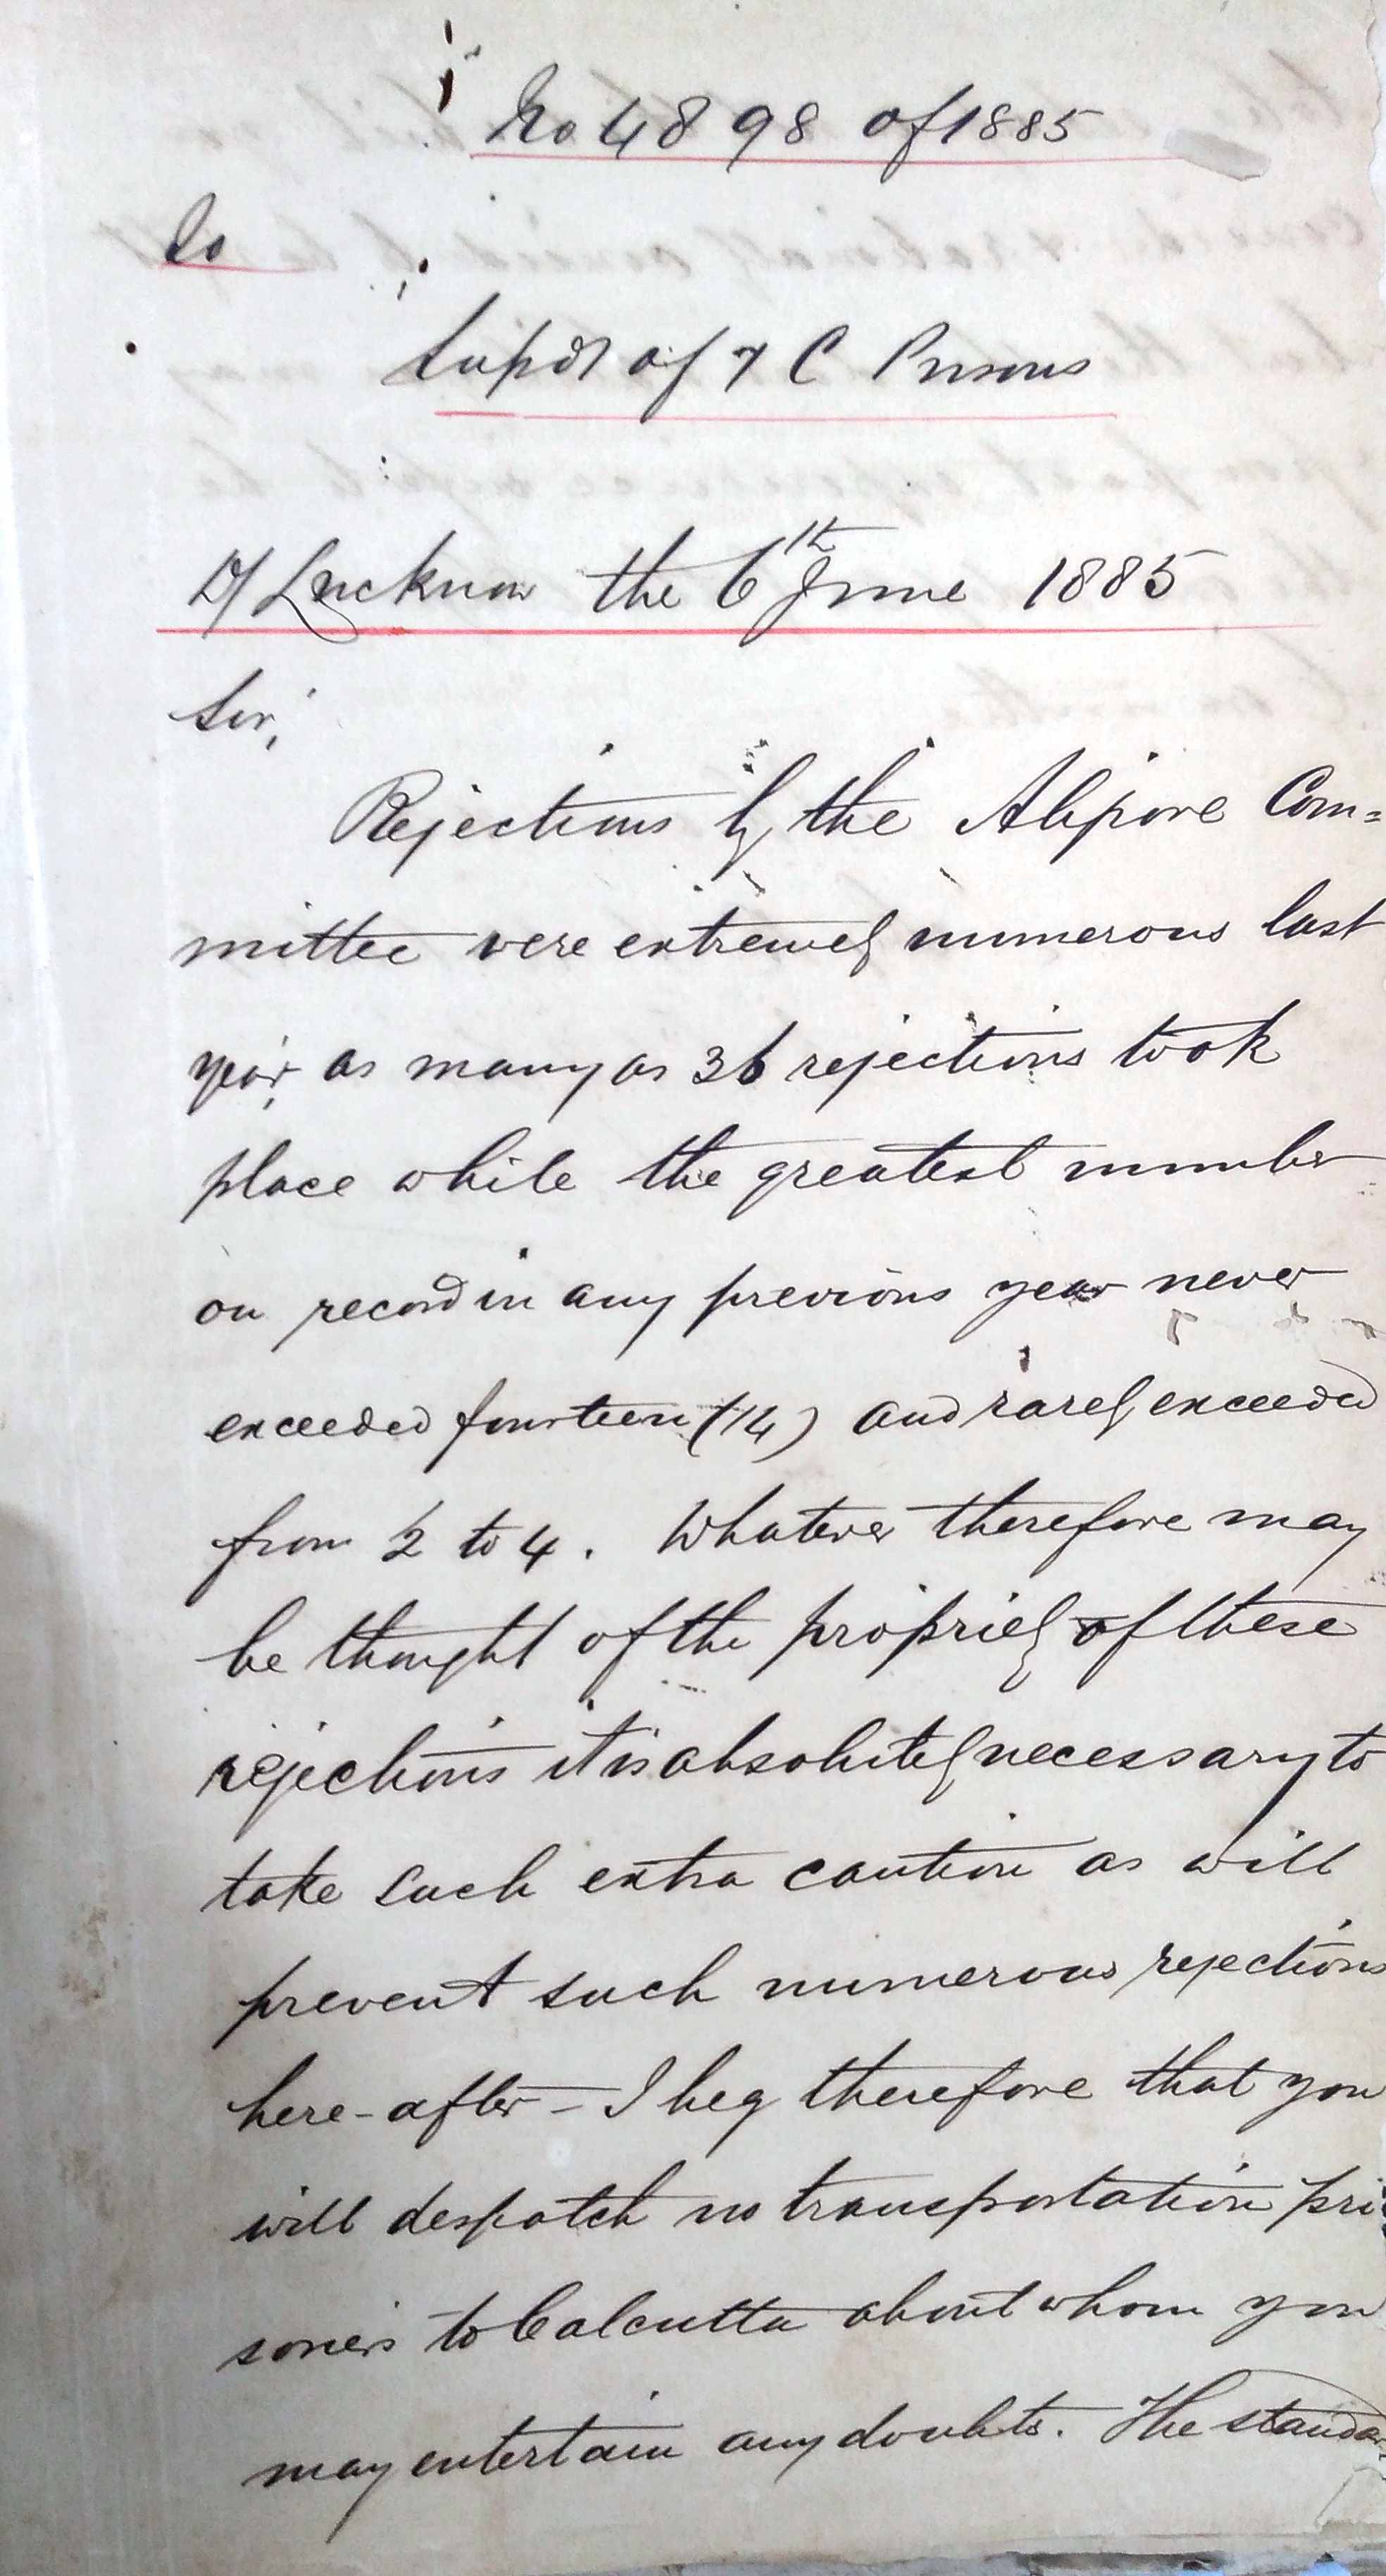 No 4898 of 1885
To
Supdt of 7 C Prisons
D/ Lucknow the 6th June 1885
Sir,
Rejections by the Alipore Com=
mittee were extremely numerous last
year, as many as 36 rejections took
place while the greatest number
on record in any previous year never
exceeded fourteen (14) and rarely exceeded
from 2 to 4. Whatever therefore may
be thought of the propriety of these
rejections it is absolutely necessary to
take such extra caution as will
prevent such numerous rejections
here-after - I beg therefore that you
will despatch no transportation pri
soners to Calcutta about whom you
may entertain any doubts. The standa